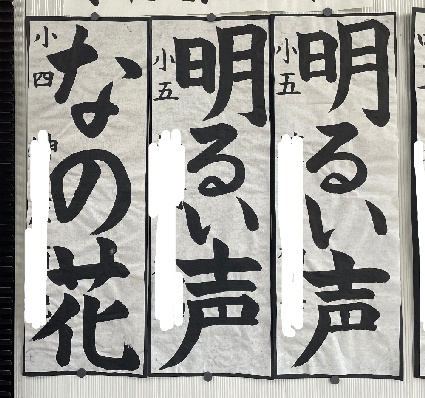 明るい声
小五
明るい声
小五
なの花
小四